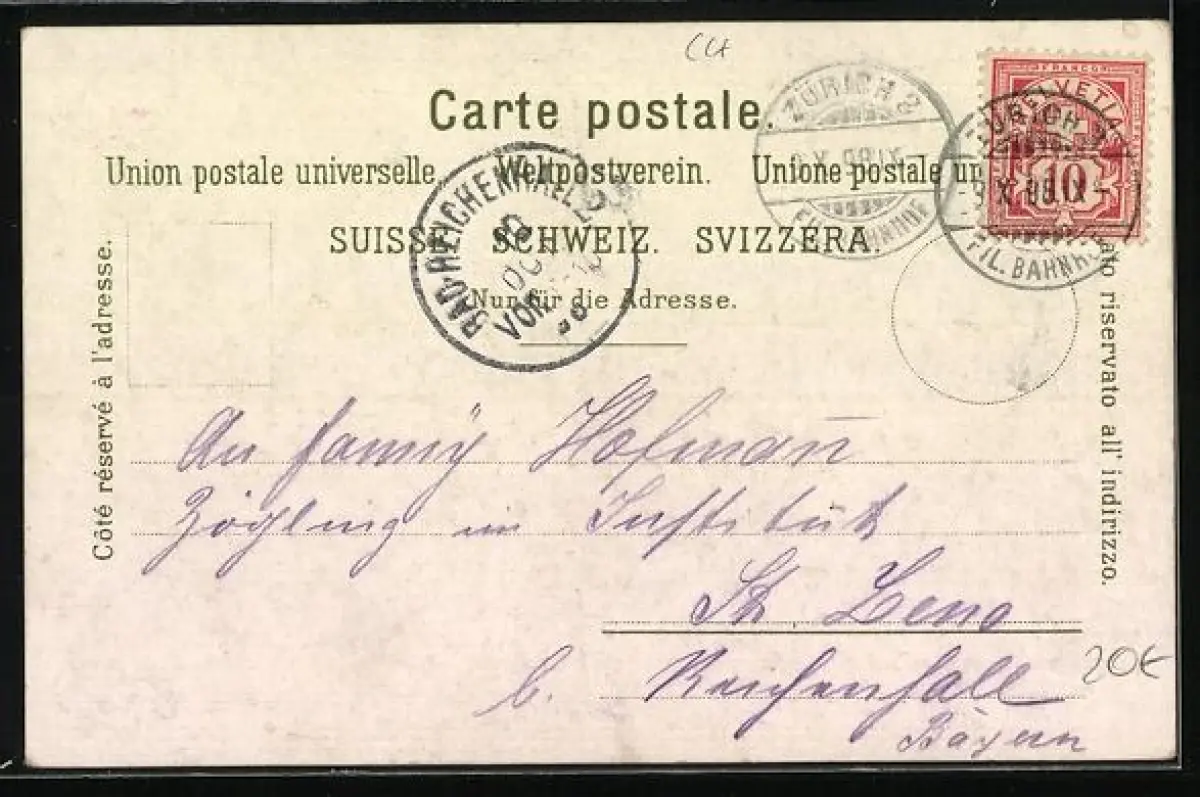 Carte postale.
Union postale universelle. Weltpostverein. Unione postale un
SUISSE. SCHWEIZ. SVIZZERA.
Nur für die Adresse.
Côté réservé à l'adresse.
ato riservato all' indirizzo.
FRANCO
HELVETIA
10
ZÜRICH 2
FIL. BAHNHOF
ZÜRICH 2
-9 X. 98 IX-
FIL. BAHNHOF
BAD-REICHENHALL
10
OCT
VOR
98
An Fanny Hofmann
Zögling im Institut
St. Zeno
b. Reichenhall
Bayern
20€